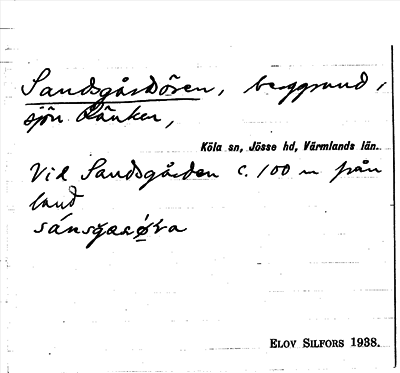 Sandsgårdsören, berggrund i
sjön Ränken,
Köla sn, Jösse hd, Värmlands län.
Vid Sandsgården c. 100 m från
land
ELOV SILFORS 1938.